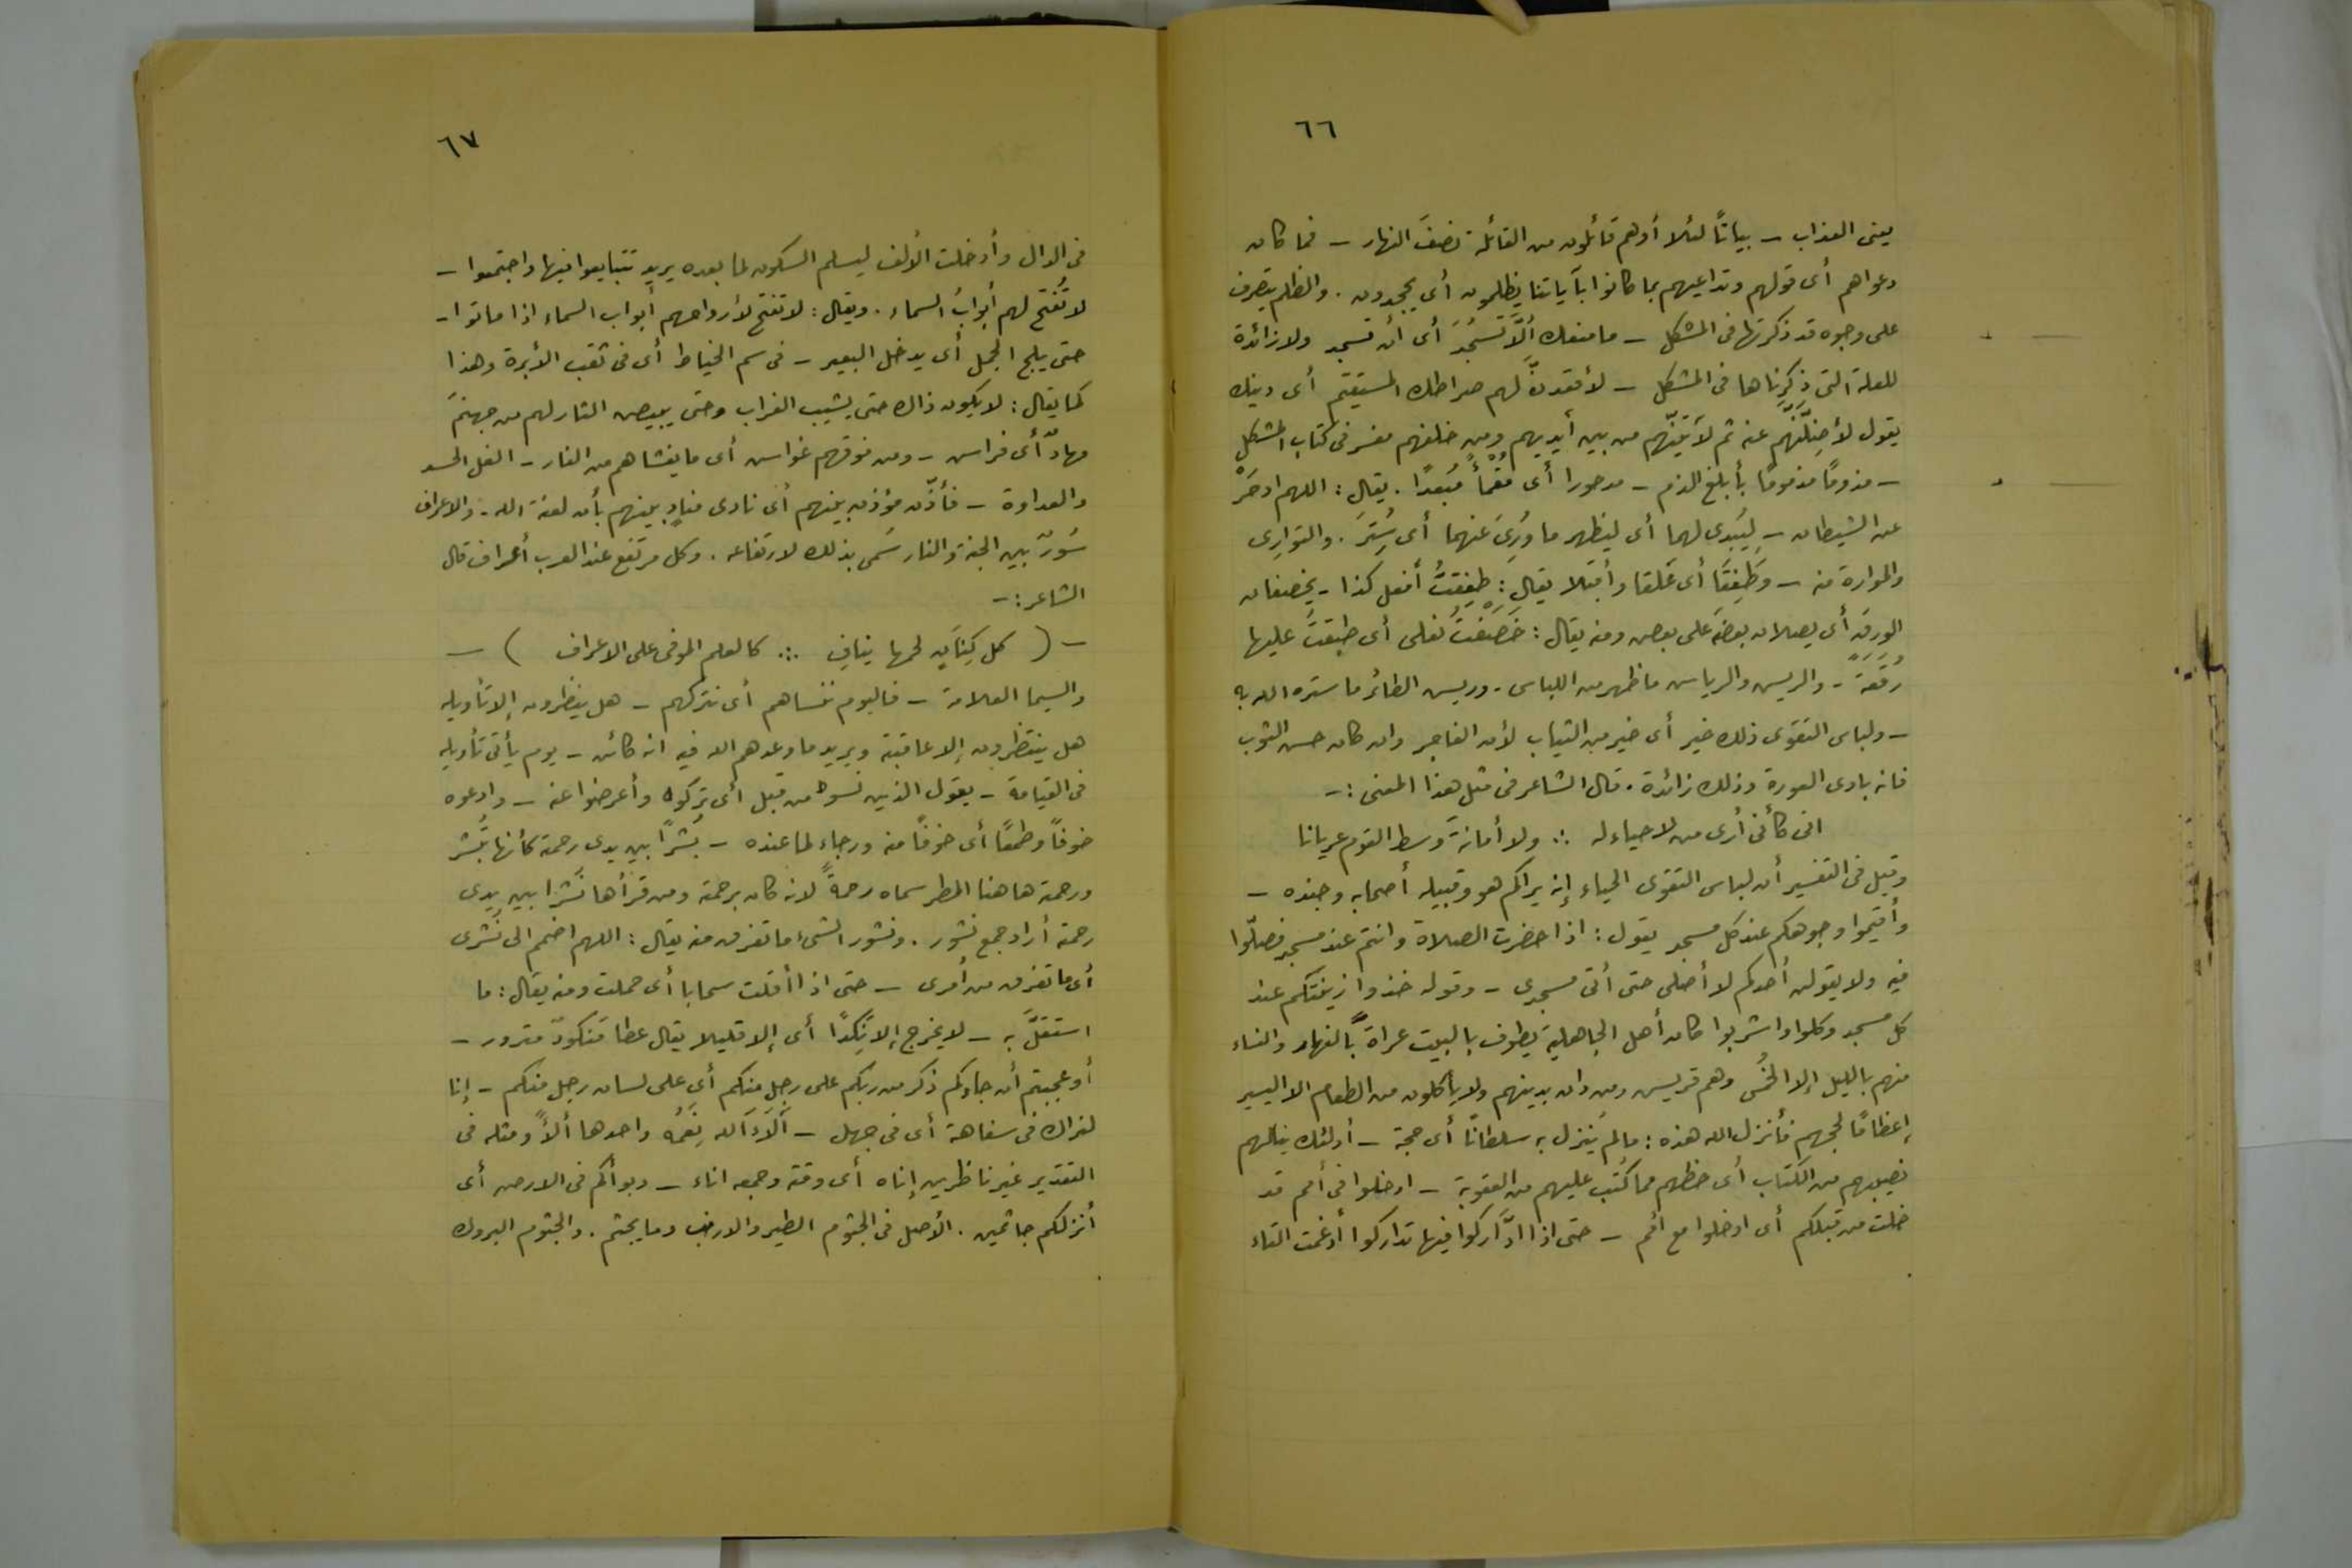 ٦٦
يعنى العذاب – بياتًا ليلا أو هم قائلون من القائلة نصفَ النهار – فما كان
دعواهم أى قولهم وتداعيهم بما كانوا بآياتنا يظلمون أى يجحدون . والظلم يتصرف
على وجوه قد ذكرتها فى المشكل – ما منعك ألَّا تَسجُدَ أى أن تسجد ولا زائدة
للعلة التى ذكرناها فى المشكل – لأقعدنَّ لهم صراطك المستقيم أى دينك
يقول لأضِلَّنَّهم عنه ثم لآتينّهم من بين أيديهم ومن خلفهم مفسر فى كتاب المشكل
– مذومًا مذمومًا بأبلغ الذم – مدحورا أى مُقْمأً مُبْعدًا . يقال : اللهم ادحَرْ
عنه الشيطان – لِيُبْدى لهما أى ليظهر ما وُرِىَ عنهما أى سُتِرَ . والتوارِى
والموارة منه – وَطَفِقَا أى عَلقا وأقبلا يقال : طفِقتُ أفعل كذا – يخصفان
الورق أى يصلان بعضه على بعض ومنه يقال : خَصَفْتُ نعلى أى طبقتُ عليها
رُقعَةً – والريش والرياش ما ظهر من اللباس . وريش الطائر ما ستره الله به
– ولباس التقوى ذلك خير أى خير من الثياب لأن الفاجر وان كان حسن الثوب
فانه بادى العورة وذلك زائدة . قال الشاعر فى مثل هذا المعنى : –
انى كأنى أرى من لا حياء له ∴ ولا أمانةَ وَسط القوم عريانا
وقيل فى التفسير أن لباس التقوى الحياء إنه يراكم هو وقبيله أصحابه وجنده –
وأقيموا وجوهكم عند كل مسجد يقول : اذا حضرت الصلاة وانتم عند مسجد فصلّوا
فيه ولا يقولن أحدكم لا أصلى حتى أتى مسجدى – وقوله خذوا زينتكم عند
كل مسجد وكلوا واشربوا كان أهل الجاهلية يطوف بالبيت عراةً بالنهار والنساء
منهم بالليل إلا الحُمُس وهم قريس ومن دان بدينهم ولا يأكلون من الطعام الا اليسير
إعظامًا لحجهم فأنزل الله هذه : ما لم يُنزل به سلطانًا أى حجة – أولئك ينالهم
نصيبهم من الكتاب أى حظهم مما كُتب عليهم من العقوبة – ادخلوا فى أمم قد
خلت من قبلكم أى ادخلوا مع أمم – حتى اذا ادَّارَكوا فيها تداركوا أدغمت التاء
٦٧
فى الدال وأدخلت الألف ليسلم السكون لما بعده يريد تتبايعوا فيها واجتمعوا –
لا تُفتح لهم أبوابُ السماء . ويقال : لا تفتح لأرواحهم أبواب السماء اذا ماتوا –
حتى يلج الجمل أى يدخل البعير – فى سم الخياط أى فى ثقب الأبرة وهذا
كما يقال : لا يكون ذاك حتى يشيب الغراب وحتى يبيض القار لهم من جهنمَ
مهادٌ أى فراس – ومن فوقهم غواس أى ما يغشاهم من النار – الغل الحسد
والعداوة – فأذّن مؤذن بينهم أى نادى منادٍ بينهم بأن لعنة الله – والاعراف
سُورٌ بين الجنة والنار سَمى بذلك لارتفاعه . وكل مرتفع عند العرب أعراف قال
الشاعر : –
– ( كل كِنَاِنٍ لحمها ينافِ ∴ كالعلم الموفى على الاعراف ) –
والسيما العلامة – فاليوم ننساهم أى نتركهم – هل ينظرون إلا تأويله
هل ينتظرون إلا عاقبته ويريد ما وعدهم الله فيه انه كائن – يوم يأتى تأويله
فى القيامة – يقول الذين نسوه من قبل أى تركوه وأعرضوا عنه – وادعوه
خوفًا وطمعًا أى خوفًا منه ورجاء لما عنده – بُشْرًا بين يدى رحمته كأنها تُبشر
ورحمته هاهنا المطر سماه رحمةً لانه كان برحمته ومن قرأها نَشْرا بين يدى
رحمته أراد جمع نشور . ونشور الشىء ما تفرق منه يقال : اللهم اضمم الى نَشْرى
أى ما تفرق من أمرى – حتى اذا أقلت سحابا أى حملت ومنه يقال : ما
استقلَّ به – لا يخرج إلا نَكِدًا أى إلا قليلا يقال عطا مَنكودٌ منزور –
أو عجبتم أن جاءكم ذكر من ربكم على رجل منكم أى على لسان رجل منكم – إنا
لنراك فى سفاهة أى فى جهل – آلَاَءَ الله نِعَمُه واحدها ألاً ومثله فى
التقدير غير ناظرين إناه أى وقته وجمعه اناء – وبوأكم فى الارض أى
أنزلكم جاثمين . الأصل فى الجثوم الطير والارنب وما يجثم . والجثوم البروك